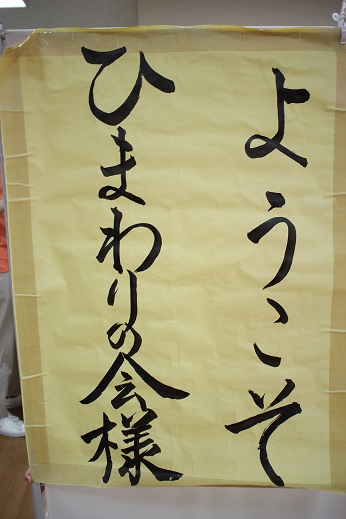 ようこそ
ひまわりの会様